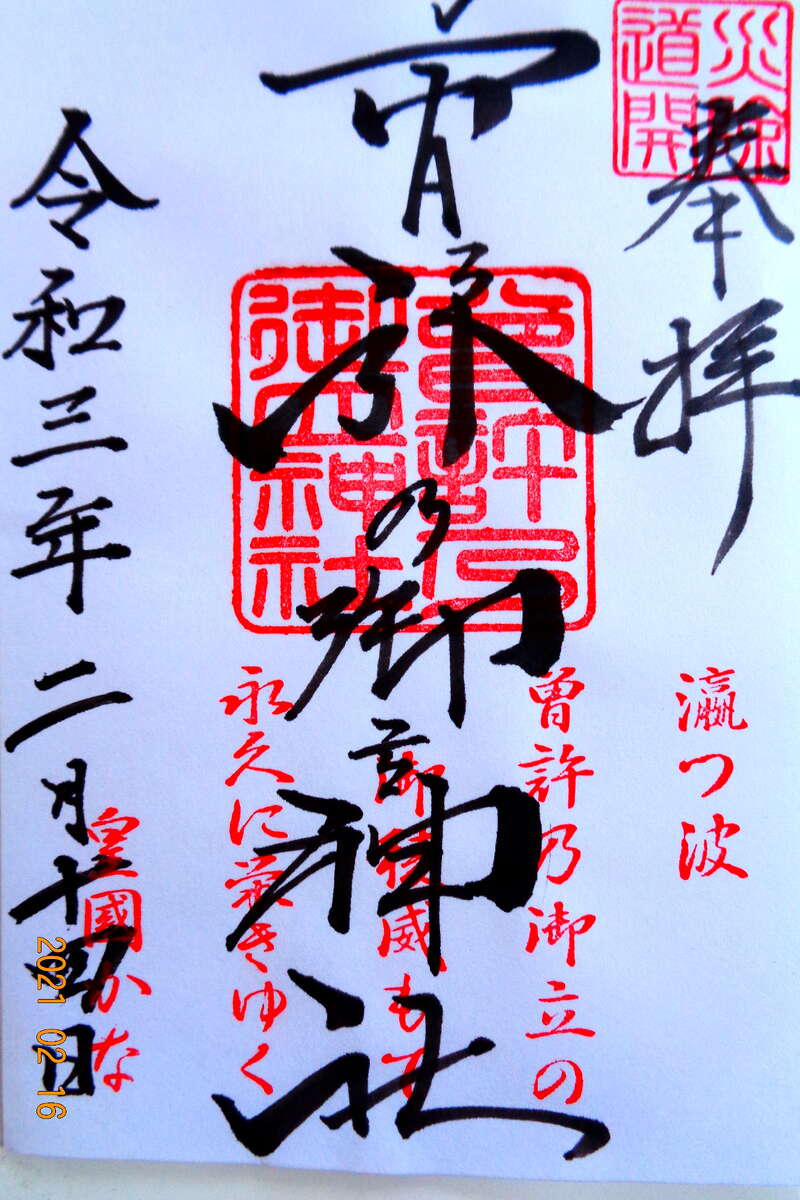 災除
道開
奉拝
曾許乃御立神社
曾許乃
御立神社
瀛つ波
曾許乃御立の
御稜威もて
永久に榮きゆく
皇國かな
令和三年二月十四日
2021 02 16